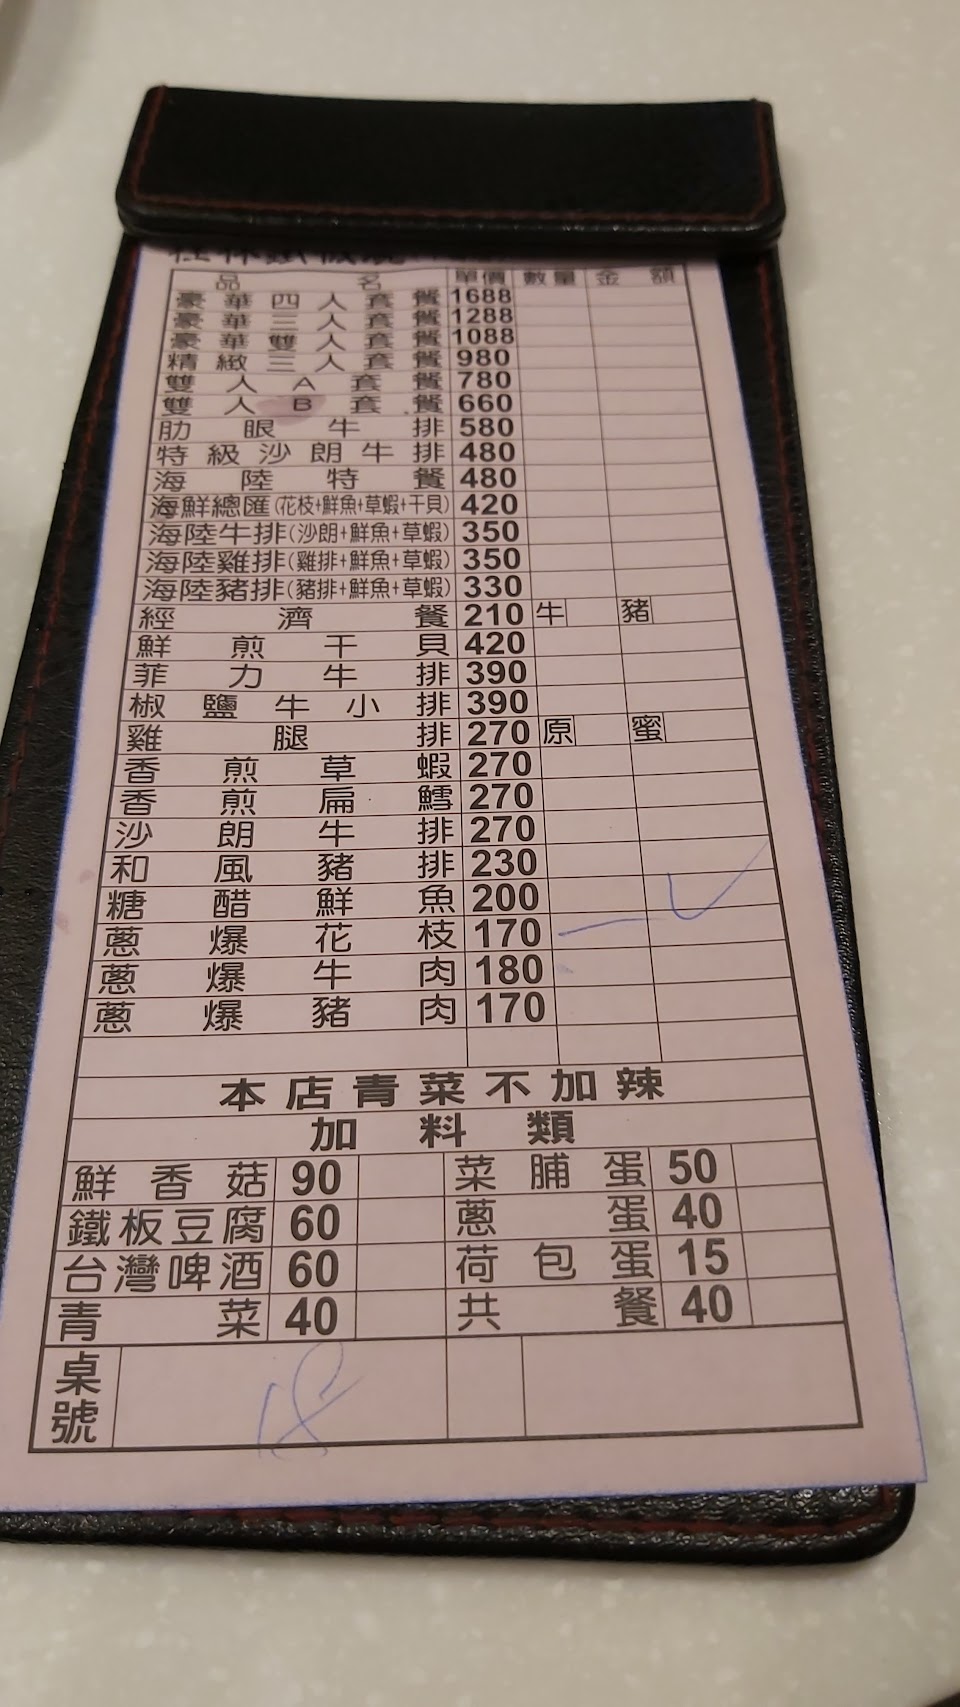 品名 單價 數量 金額
豪華四人套餐 1688
豪華三人套餐 1288
豪華雙人套餐 1088
精緻三人套餐 980
雙人A套餐 780
雙人B套餐 660
肋眼牛排 580
特級沙朗牛排 480
海陸特餐 480
海鮮總匯(花枝+鮮魚+草蝦+干貝) 420
海陸牛排(沙朗+鮮魚+草蝦) 350
海陸雞排(雞排+鮮魚+草蝦) 350
海陸豬排(豬排+鮮魚+草蝦) 330
經濟餐 210 牛 豬
鮮煎干貝 420
菲力牛排 390
椒鹽牛小排 390
雞腿排 270 原 蜜
香煎草蝦 270
香煎扁鱈 270
沙朗牛排 270
和風豬排 230
糖醋鮮魚 200
蔥爆花枝 170 一
蔥爆牛肉 180
蔥爆豬肉 170
本店青菜不加辣
加料類
鮮香菇 90 菜脯蛋 50
鐵板豆腐 60 蔥蛋 40
台灣啤酒 60 荷包蛋 15
青菜 40 共餐 40
桌號 18